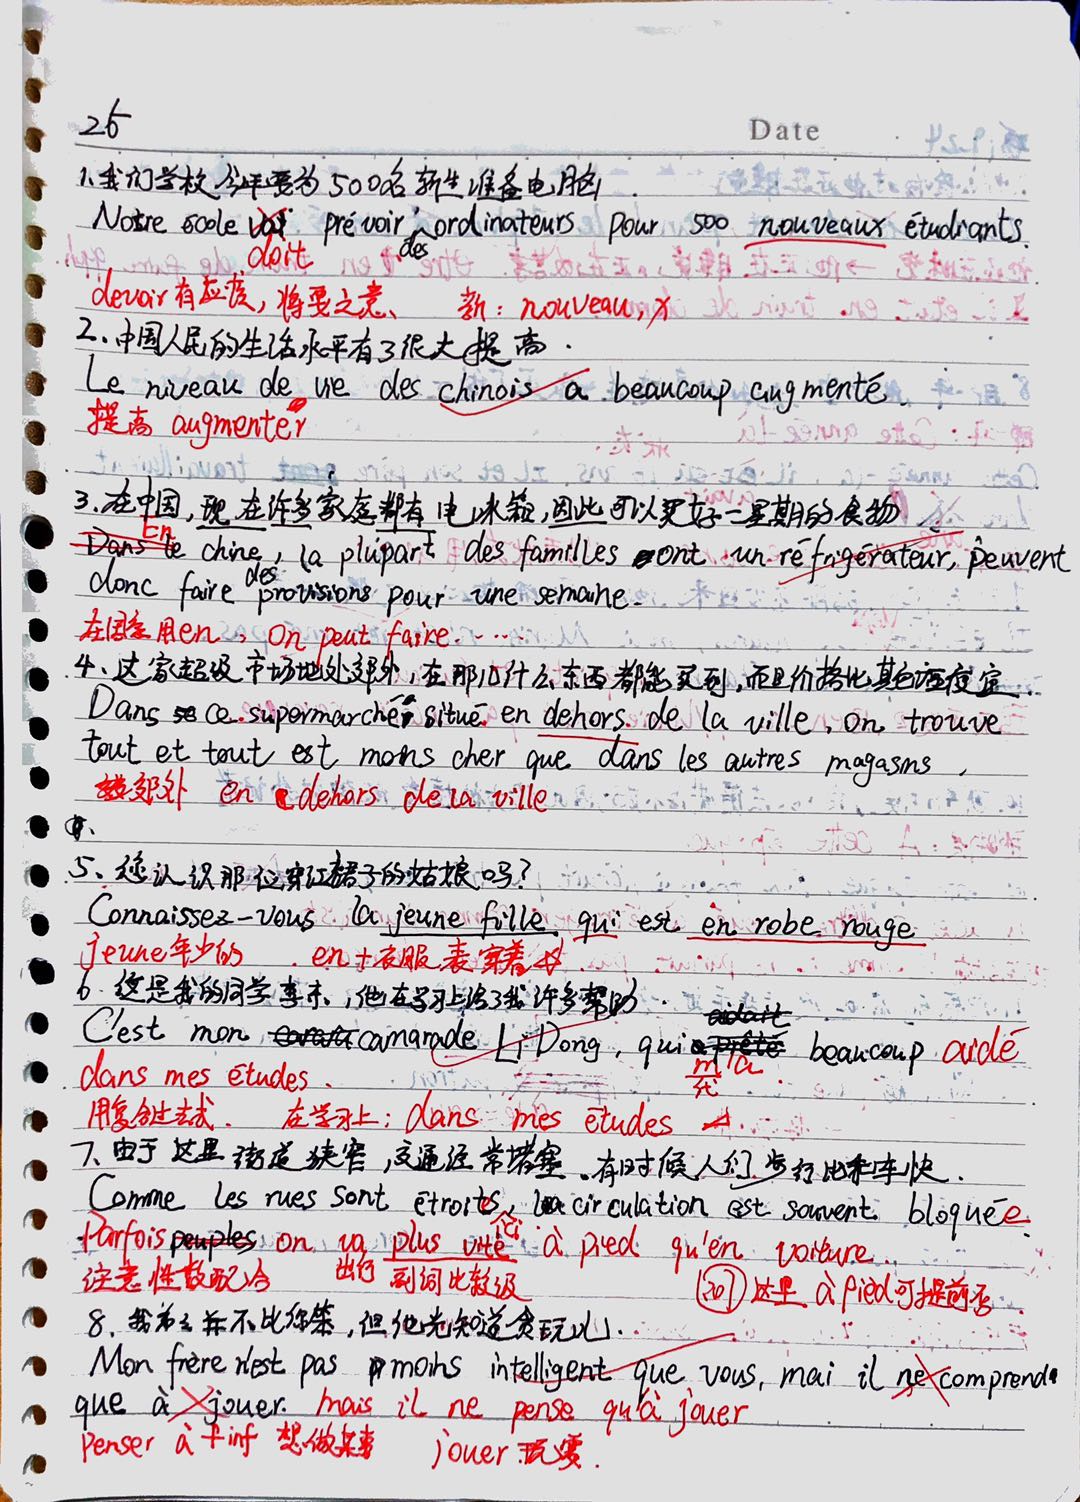 25
Date
1.我们学校今年要为500名新生准备电脑
Notre école prévoir ordinateurs pour 500 nouveaux étudiants.
doit des
devoir有应该,将要之意、 新:nouveau,x
2、中国人民的生活水平有了很大提高.
Le niveau de vie des chinois a beaucoup augmenté.
提高 augmenter
3.在中国,现在许多家庭都有电冰箱,因此可以买好一星期的食物
En
Dans le chine, la plupart des familles ont un réfrigérateur, peuvent
donc faire des provisions pour une semaine.
在国家用en, On peut faire......
4、这家超级市场地处郊外,在那儿什么东西都能买到,而且价格比其它店便宜.
Dans ce supermarché situé en dehors de la ville, on trouve
tout et tout est moins cher que dans les autres magasins,
郊外 en dehors de la ville
5、您认识那位穿红裙子的姑娘吗?
Connaissez-vous la jeune fille qui est en robe rouge
jeune年少的 en+衣服表穿着
6、这是我的同学李东,他在学习上给了我许多帮助.
C'est mon camarade Li Dong, qui m'a beaucoup aidé
dans mes études.
用复合过去式. 在学习上:dans mes études
7、由于这里街道狭窄,交通经常堵塞、有时候人们步行比乘车快.
Comme les rues sont étroites, la circulation est souvent bloquée
Parfois on va plus vite à pied qu'en voiture.
注意性数配合 出行 副词比较级 这里à pied可提前否
8、我弟弟并不比你笨,但他光知道贪玩儿.
Mon frère n'est pas moins intelligent que vous, mai il ne comprend
que à jouer. mais il ne pense qu'à jouer
Penser à +inf 想做某事 jouer玩耍.